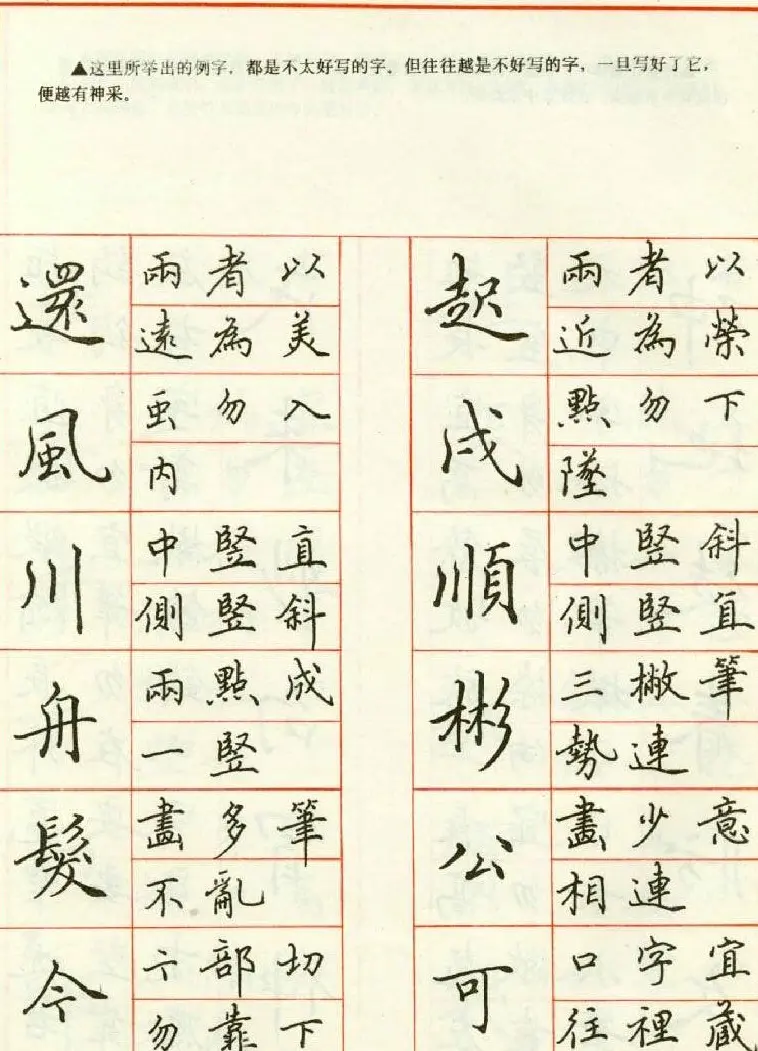 ▲这里所举出的例字，都是不太好写的字。但往往越是不好写的字，一旦写好了它，
便越有神采。
還
兩者以
遠為美
風
虫勿入
内
川
中竪直
側竪斜
舟
兩點成
一竪
髮
畫多筆
不亂
今
亠部切
勿靠下
起
兩者以
近為榮
戍
點勿下
墜
順
中竪斜
側竪直
彬
三撇筆
勢連
公
畫少意
相連
可
口字宜
往裡藏